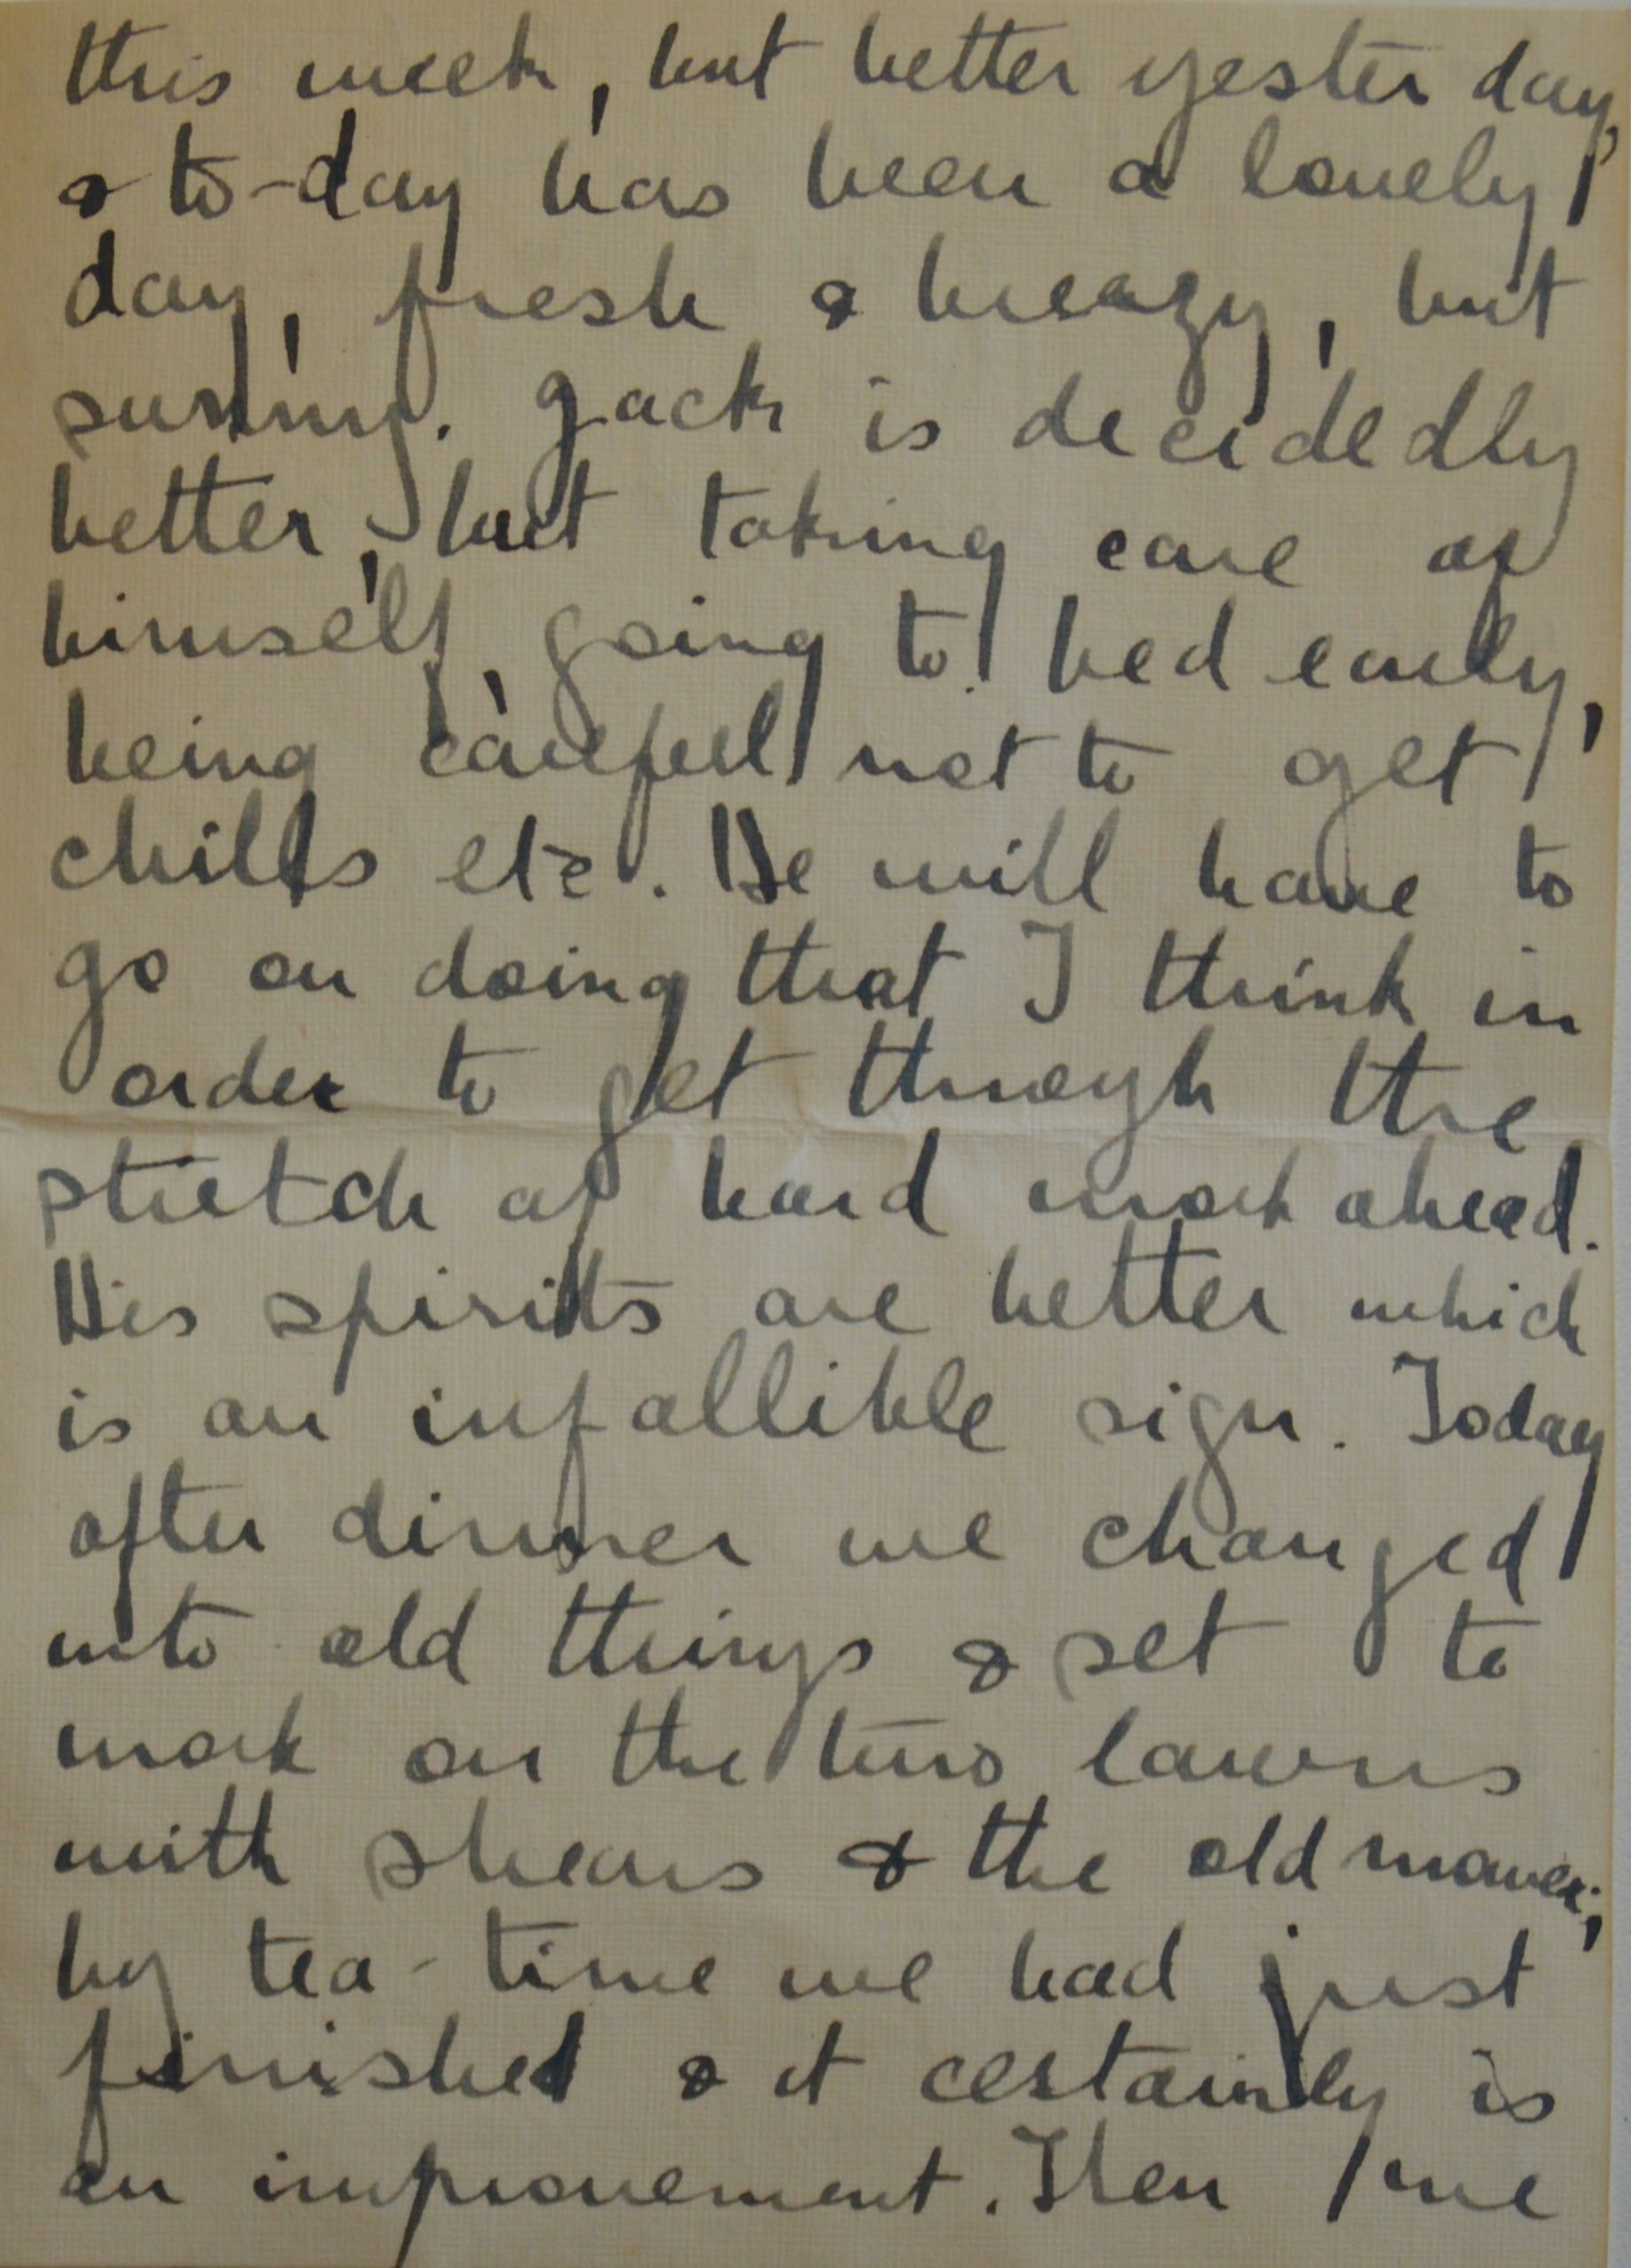 this week, but better yesterday,
& to-day has been a lovely
day, fresh & breezy, but
sunny. Jack is decidedly
better, but taking care of
himself, going to bed early,
being careful not to get
chills etc. He will have to
go on doing that I think in
order to get through the
stretch of hard work ahead.
His spirits are better which
is an infallible sign. Today
after dinner we changed
into old things & set to
work on the two lawns
with shears & the old mower;
by tea-time we had just
finished & it certainly is
an improvement. Then we